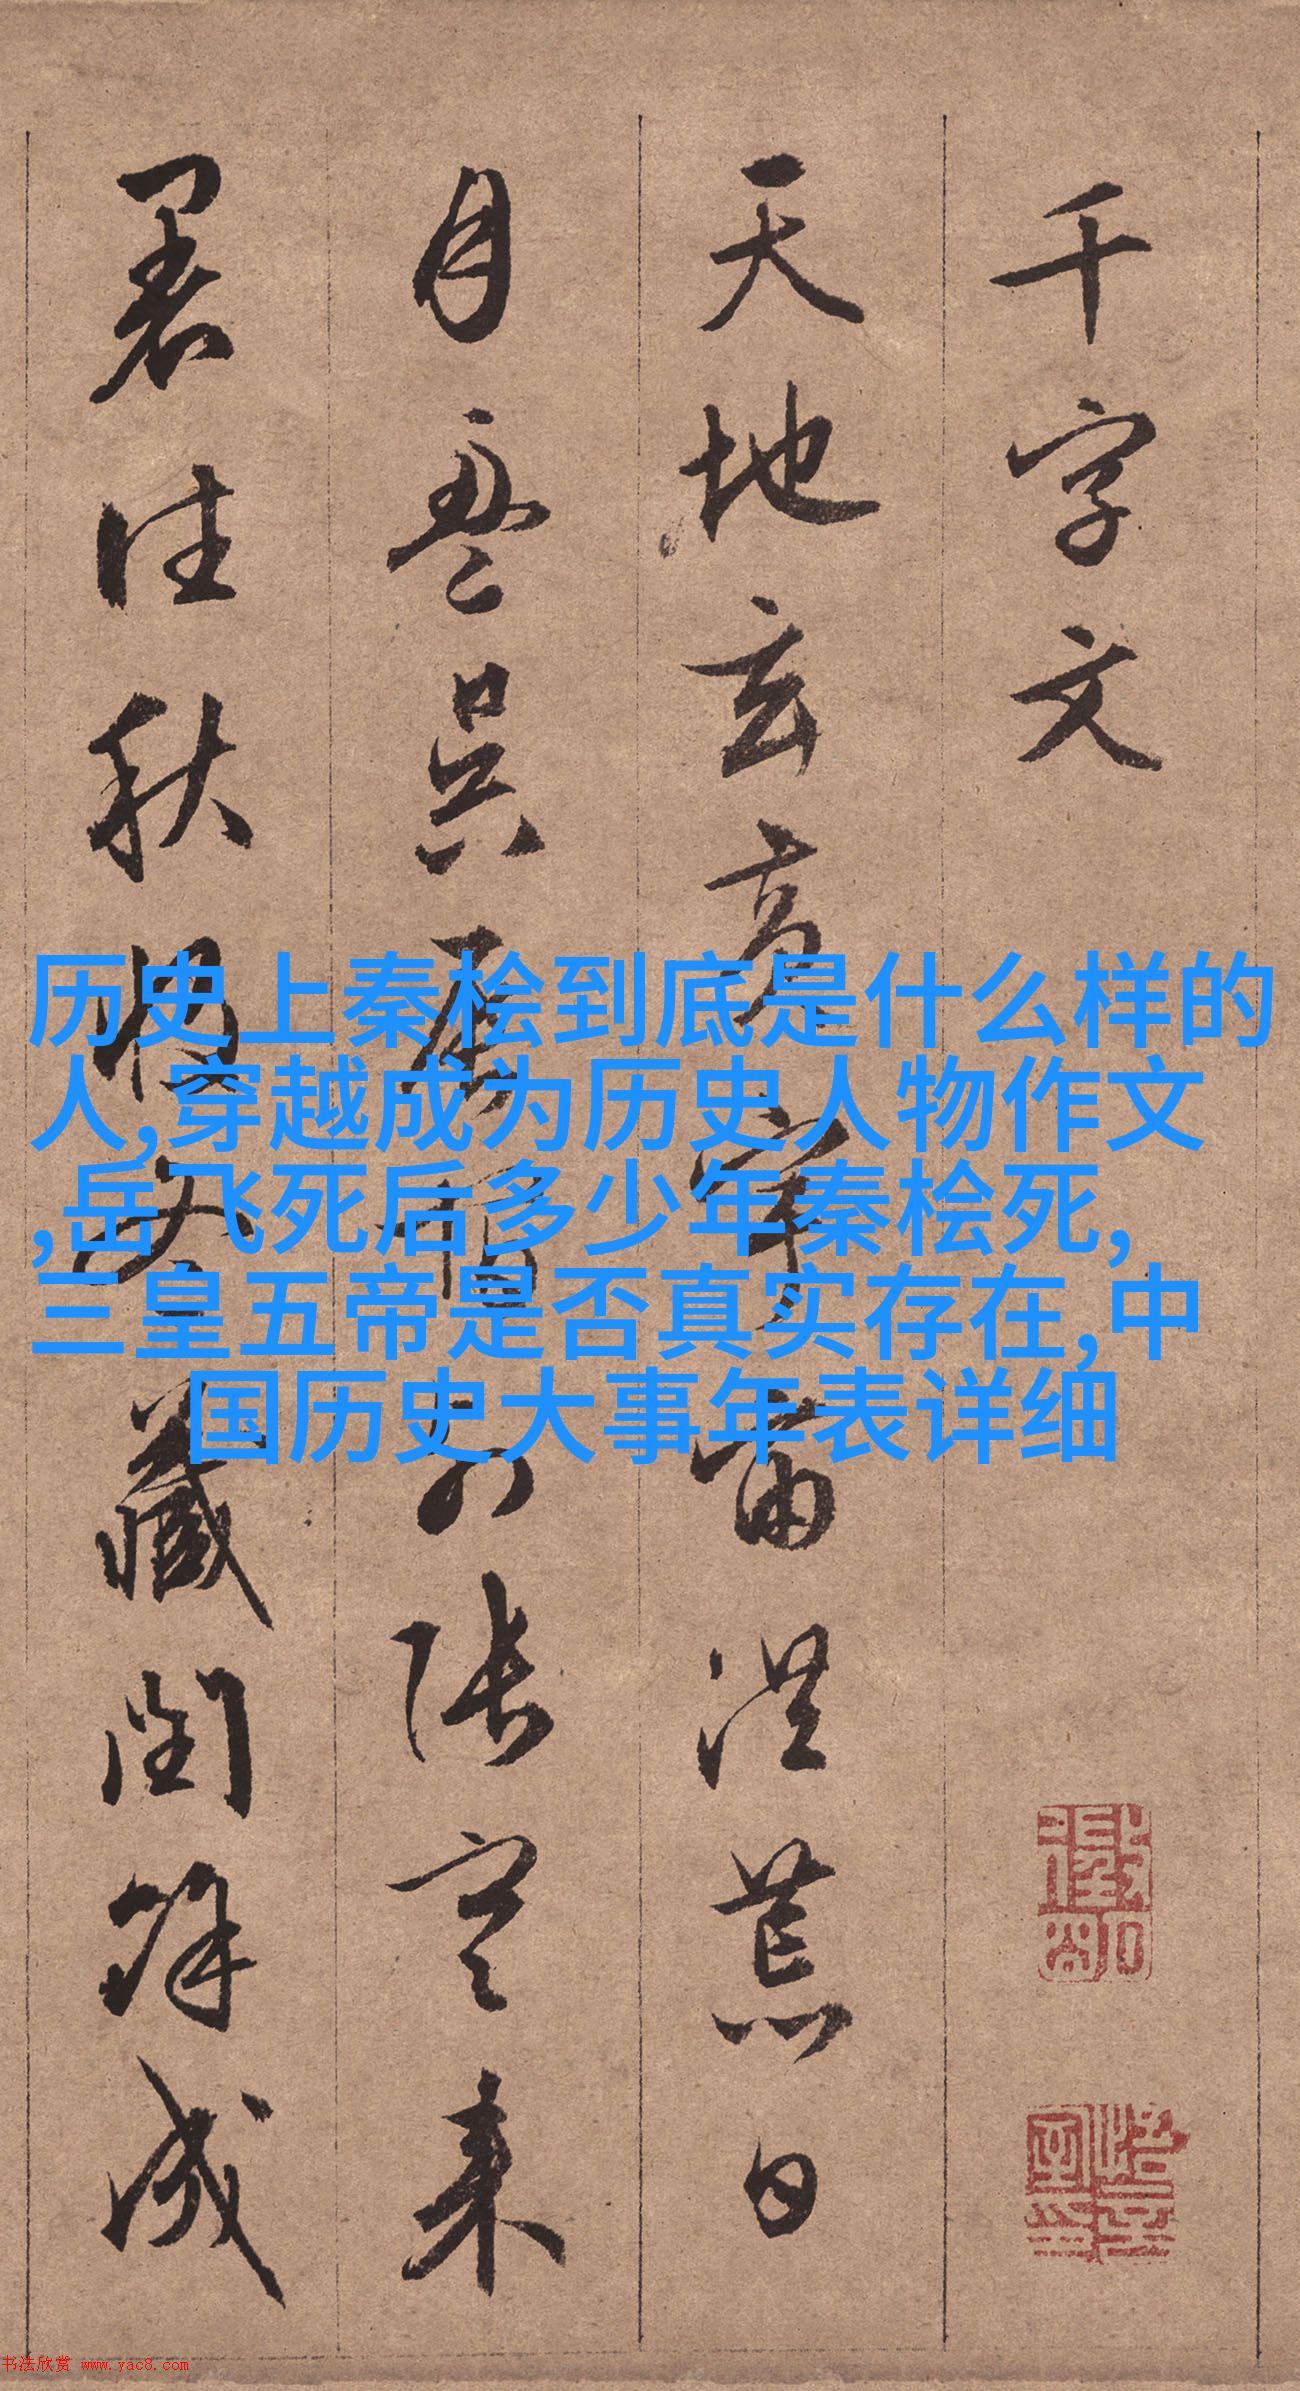 千字文
天地玄黄宇宙洪荒日
月盈昃辰宿列张寒来
暑往秋收冬藏闰余成
历史上秦桧到底是什么样的
人,穿越成为历史人物作文
,岳飞死后多少年秦桧死,
三皇五帝是否真实存在,中
国历史大事年表详细
书法欣赏 www.yac8.com